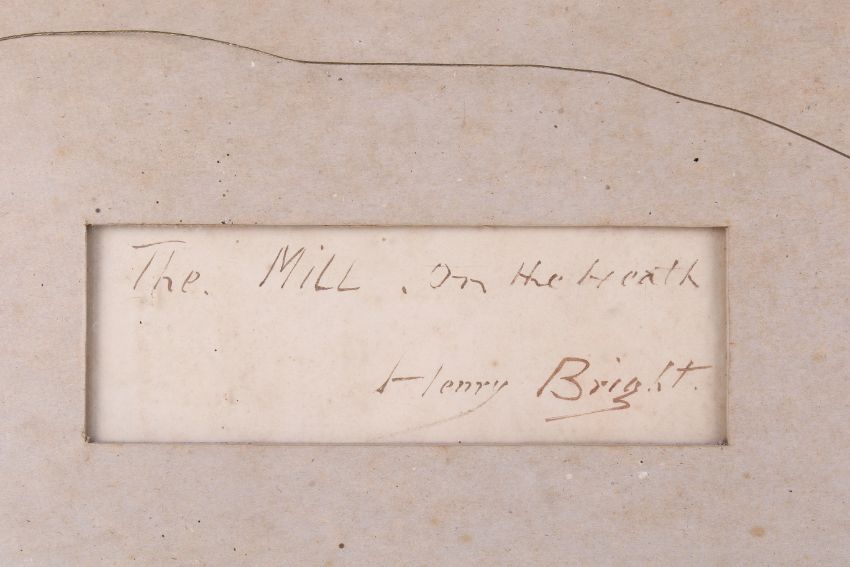 The. Mill. on the Heath
Henry Bright.